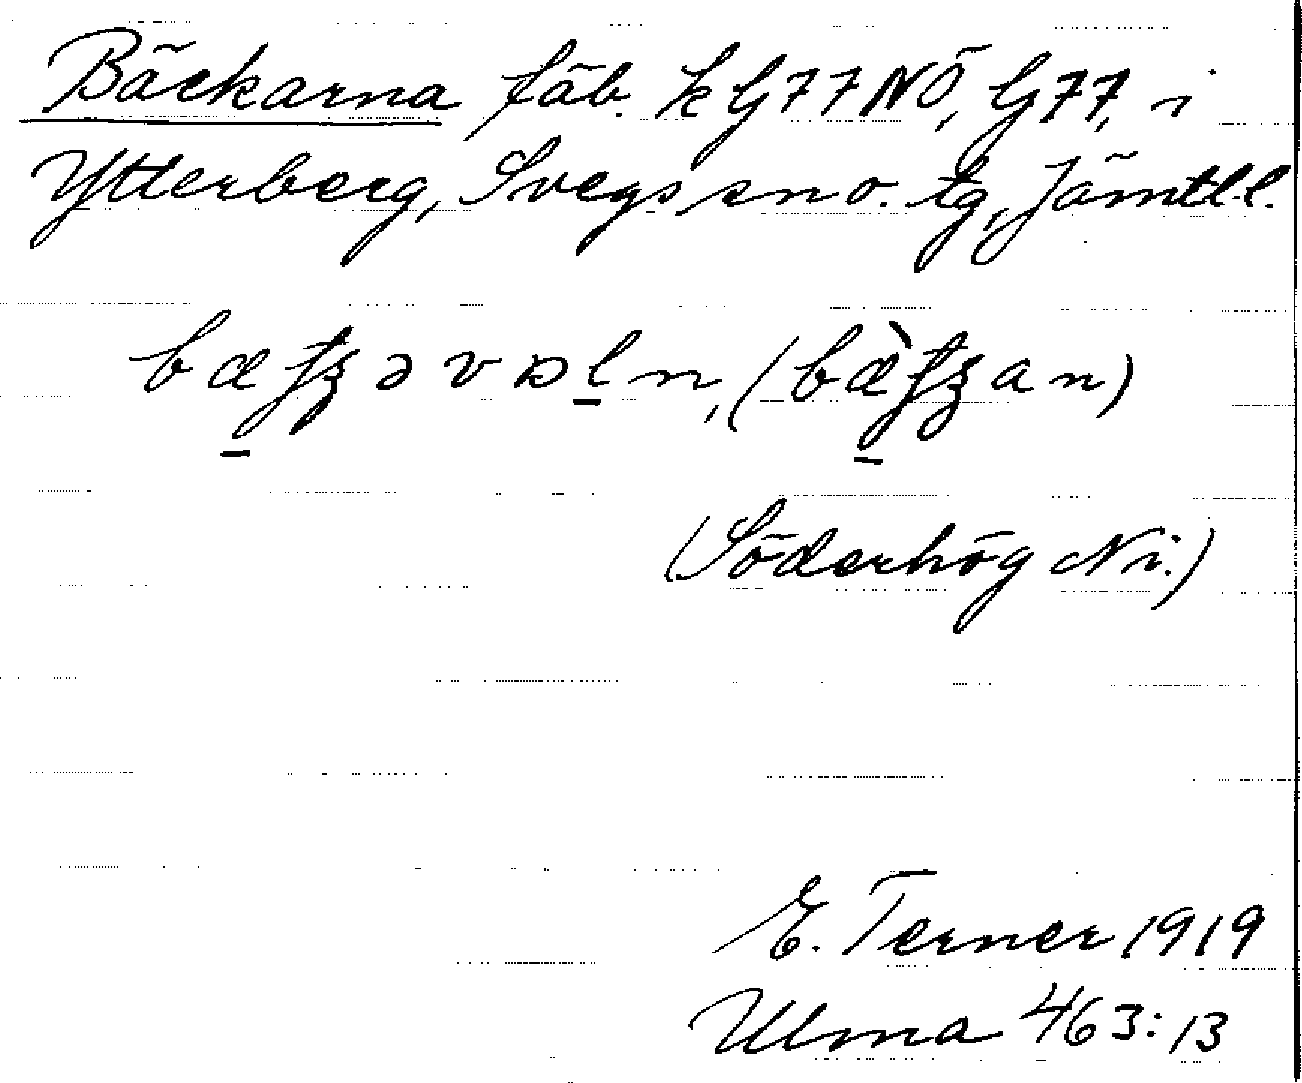 Bäckarna fäb. k G77NÖ, G77, i
Ytterberg, Svegs sn o. tg, Jämtl.l.
(Söderhög Ni.)
E. Terner 1919
Ulma 463:13